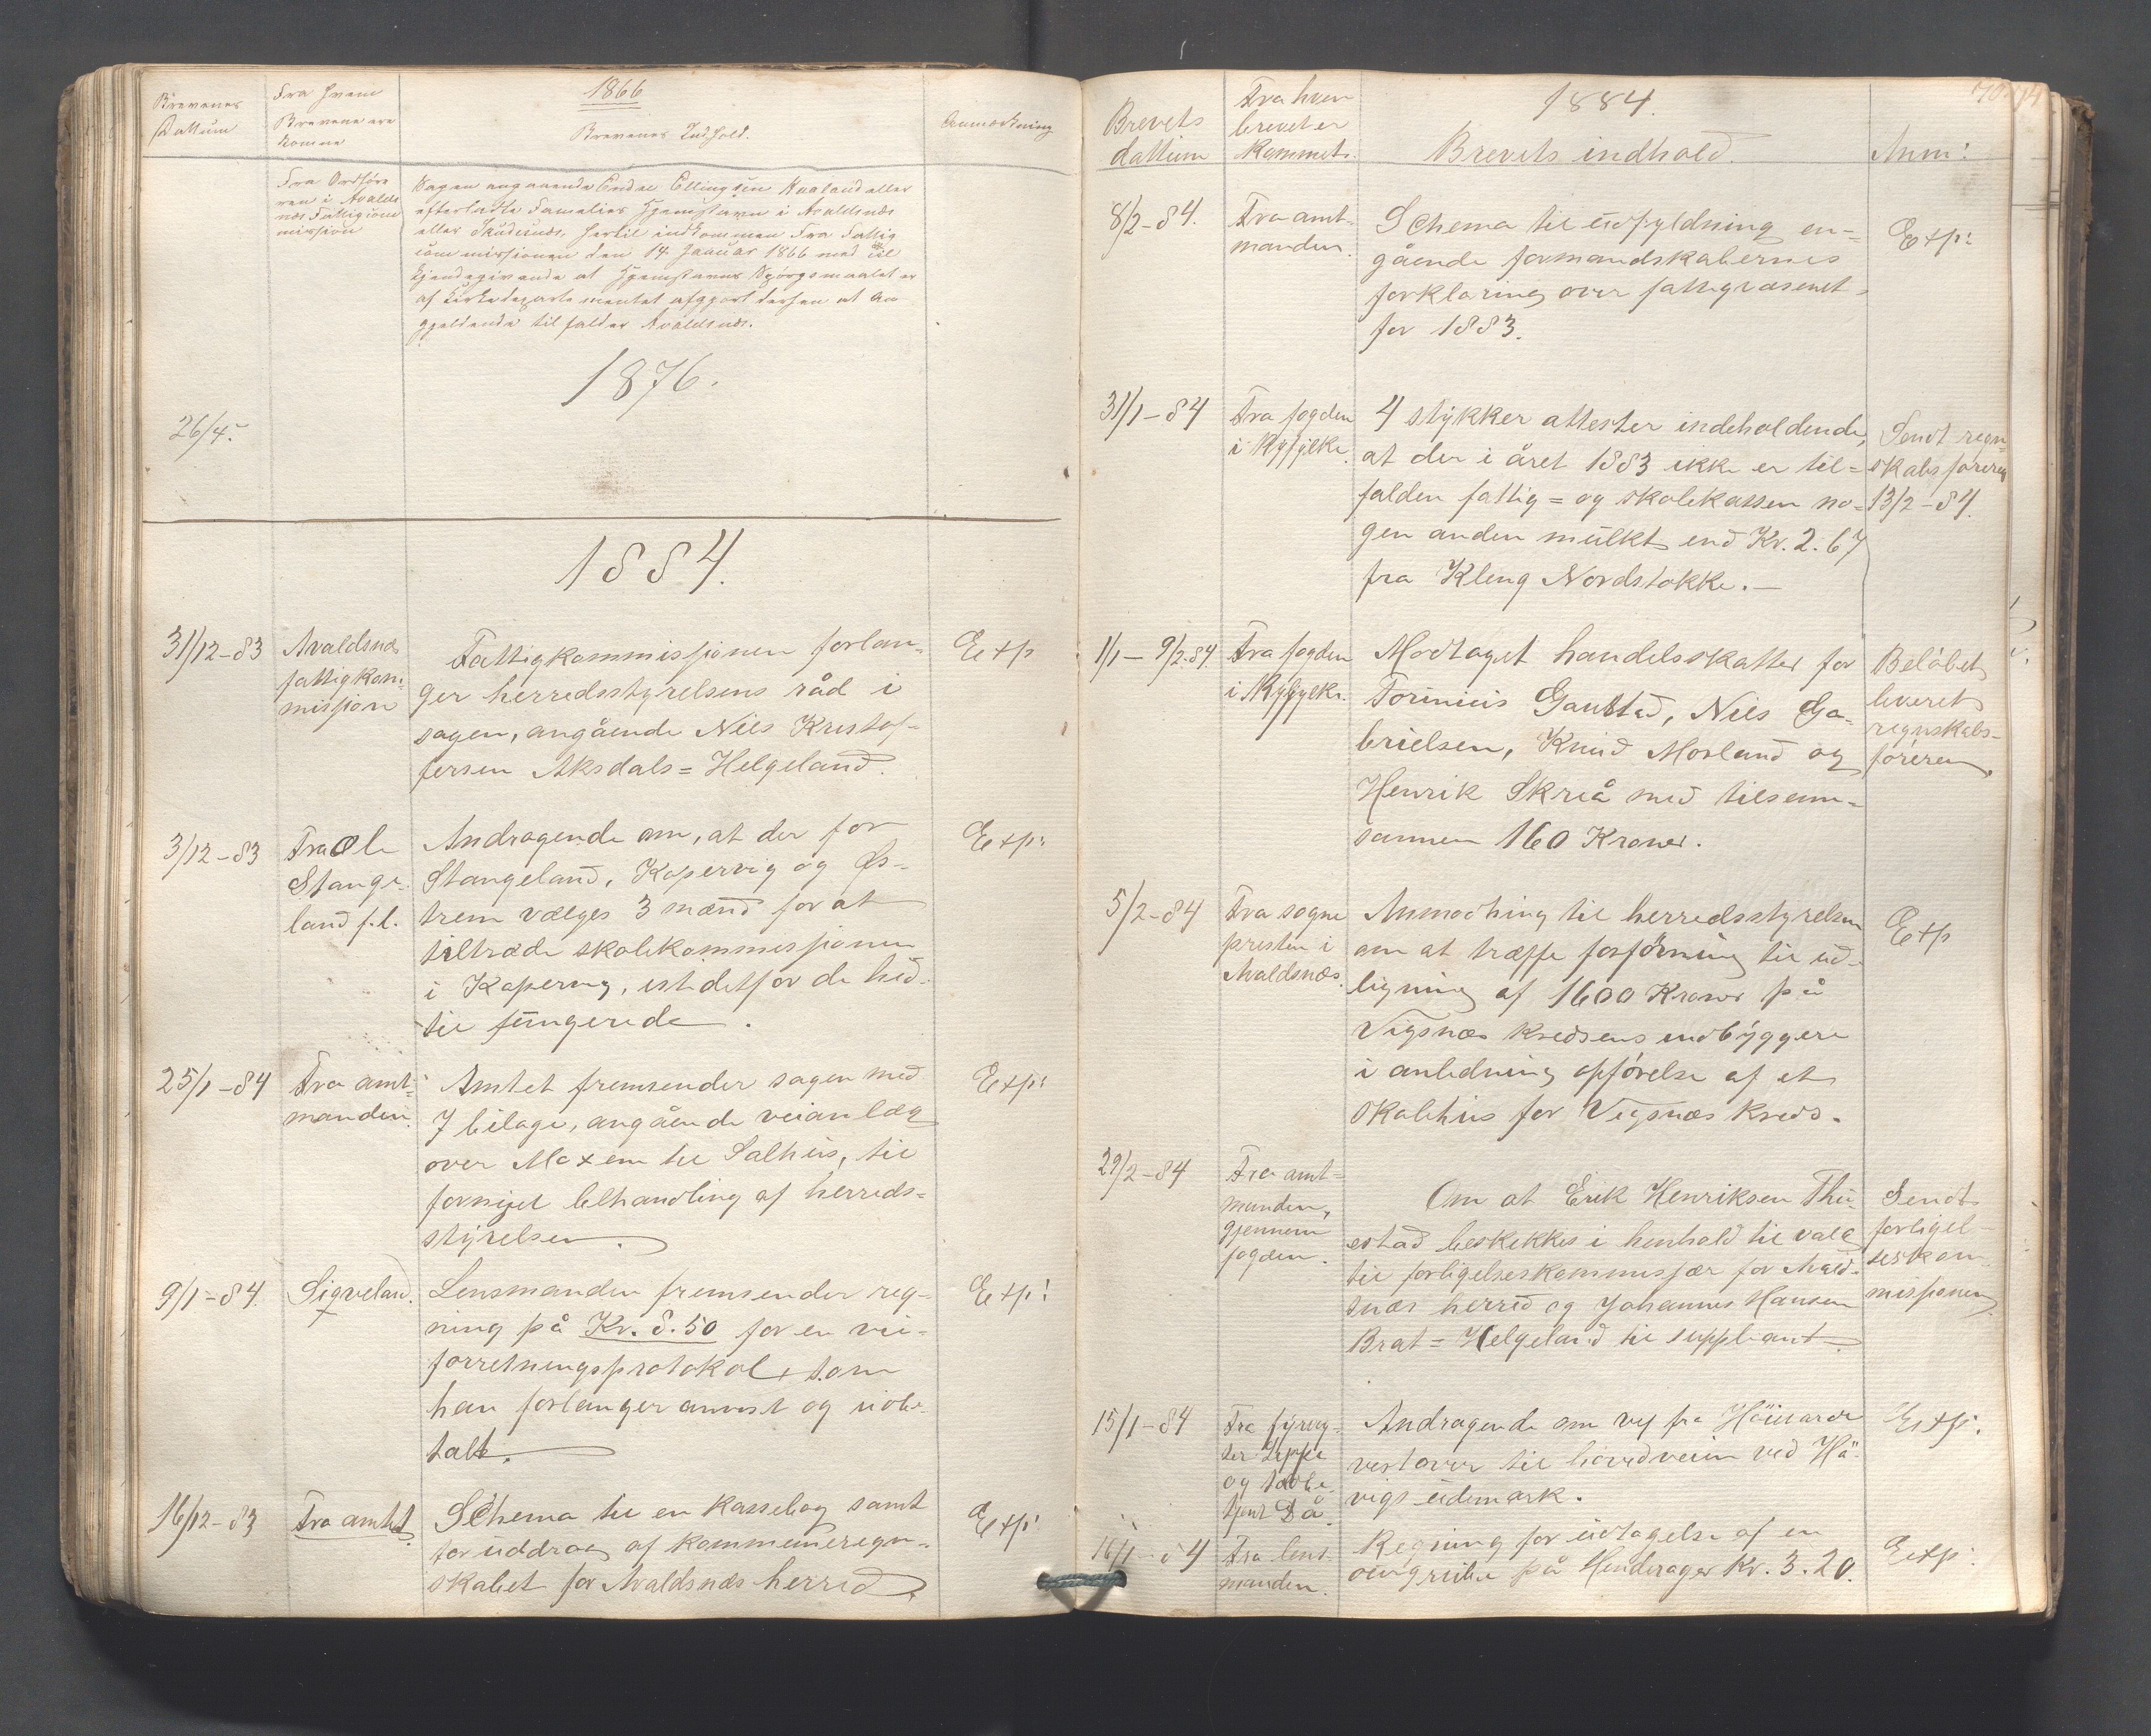 Brevenes
Dattum
Fra hvem
Brevene ere
komne
1866
Brevenes Indhold.
Anmærkning
Fra Ordføre
ren i Avalds
næs Fattigcom
mission
Sagen angaaende Endre Ellingsen Kaaland eller
efterladte Families Hjemstavn i Avaldsnæs
eller Skudenæs, hertil indkommen fra Fattig
commissionen den 14 Januar 1866 med
Kjendegivende at Hjemstavns Spørgsmaalet er
af Kirkedepartementet afgjort derhen at An
gjeldende tilfalder Avaldsnæs.
1876.
26/4.
1884.
31/12-83
Avaldsnæs
fattigkom-
missjon
Fattigkommissjonen forlan-
ger herredsstyrelsens råd i
sagen, angående Nils Kristof-
fersen Aksdals=Helgeland.
Extp
3/12-83
Fra Ole
Stange-
land f.l.
Andragende om, at der for
Stangeland, Kopervig og Øs-
trem vælges 3 mænd for at
tiltræde skolekommissjonen
i Kopervig, istedetfor de hid-
til fungerede.
Extp:
25/1-84
Fra amt-
manden.
Amtet fremsender sagen med
7 bilage, angående veianlæg
over Moxem til Salhus, til
fornyet behandling af herreds=
styrelsen.
Extp:
9/1-84.
Sigveland.
Lensmanden fremsender reg-
ning på Kr. 8.50 for en vei-
forretningsprotokol, som
han forlanger anvist og udbe-
talt.
Extp:
16/12-83
Fra amtet.
Schema til en Kassebog samt
for uddrag af kommuneregn-
skabet for Avaldsnæs herred.
Extp:
Brevets
dattum
Fra hvem
brevet er
kommet.
1884.
Brevets indhold.
Anm:
8/2-84.
Fra amt-
manden.
Schema til udfyldning en-
gående formandskabernes
forklaring over fattigvæsenet
for 1883.
Extp:
31/1-84
Fra fogden
i Ryfylke.
4 stykker attester indeholdende,
at der i året 1883 ikke er til=
falden fattig= og skolekassen no-
gen anden mulkt end Kr. 2.67
fra Kleng Nordstokke.-
Sendt regn-
skabsføreren
13/2-84.
1/1-9/2-84.
Fra fogden
i Ryfylke.
Modtaget handelsskatter for
Torinius Gaustad, Nils Ga-
brielsen, Knud Mosland og
Henrik Skreå med tilsam-
sammen 160 Kroner.
Beløbet
leveret
regnskabs-
føreren.
5/2-84
Fra sogne
presten i
Avaldsnæs.
Anmodning til herredsstyrelsen
om at træffe forføining til ud-
ligning af 1600 Kroner på
Vigsnæs kredsens indbyggere
i anledning opførelse af et
skolehus for Vigsnæs kreds.
Extp
29/2-84
Fra amt=
manden,
gjennem
fogden.
Om at Erik Henriksen Thu-
estad beskikkes i henhold til valg
til forligelseskommissær for Avald-
snæs herred og Johannes Hansen
Brat=Helgeland til suppleant.
Sendt
forligel-
seskom-
missjonen
15/1-84
Fra fyrvog-
ter Leppe
og
tjent Då.
Andragende om vej fra Høievarde
vestover til hovedveien ved Hå-
vigs udmark.
Extp:
16/1-84
Fra lens-
manden.
Regning for udtagelse af en
på Hinderager Kr. 3.20.
Extp: